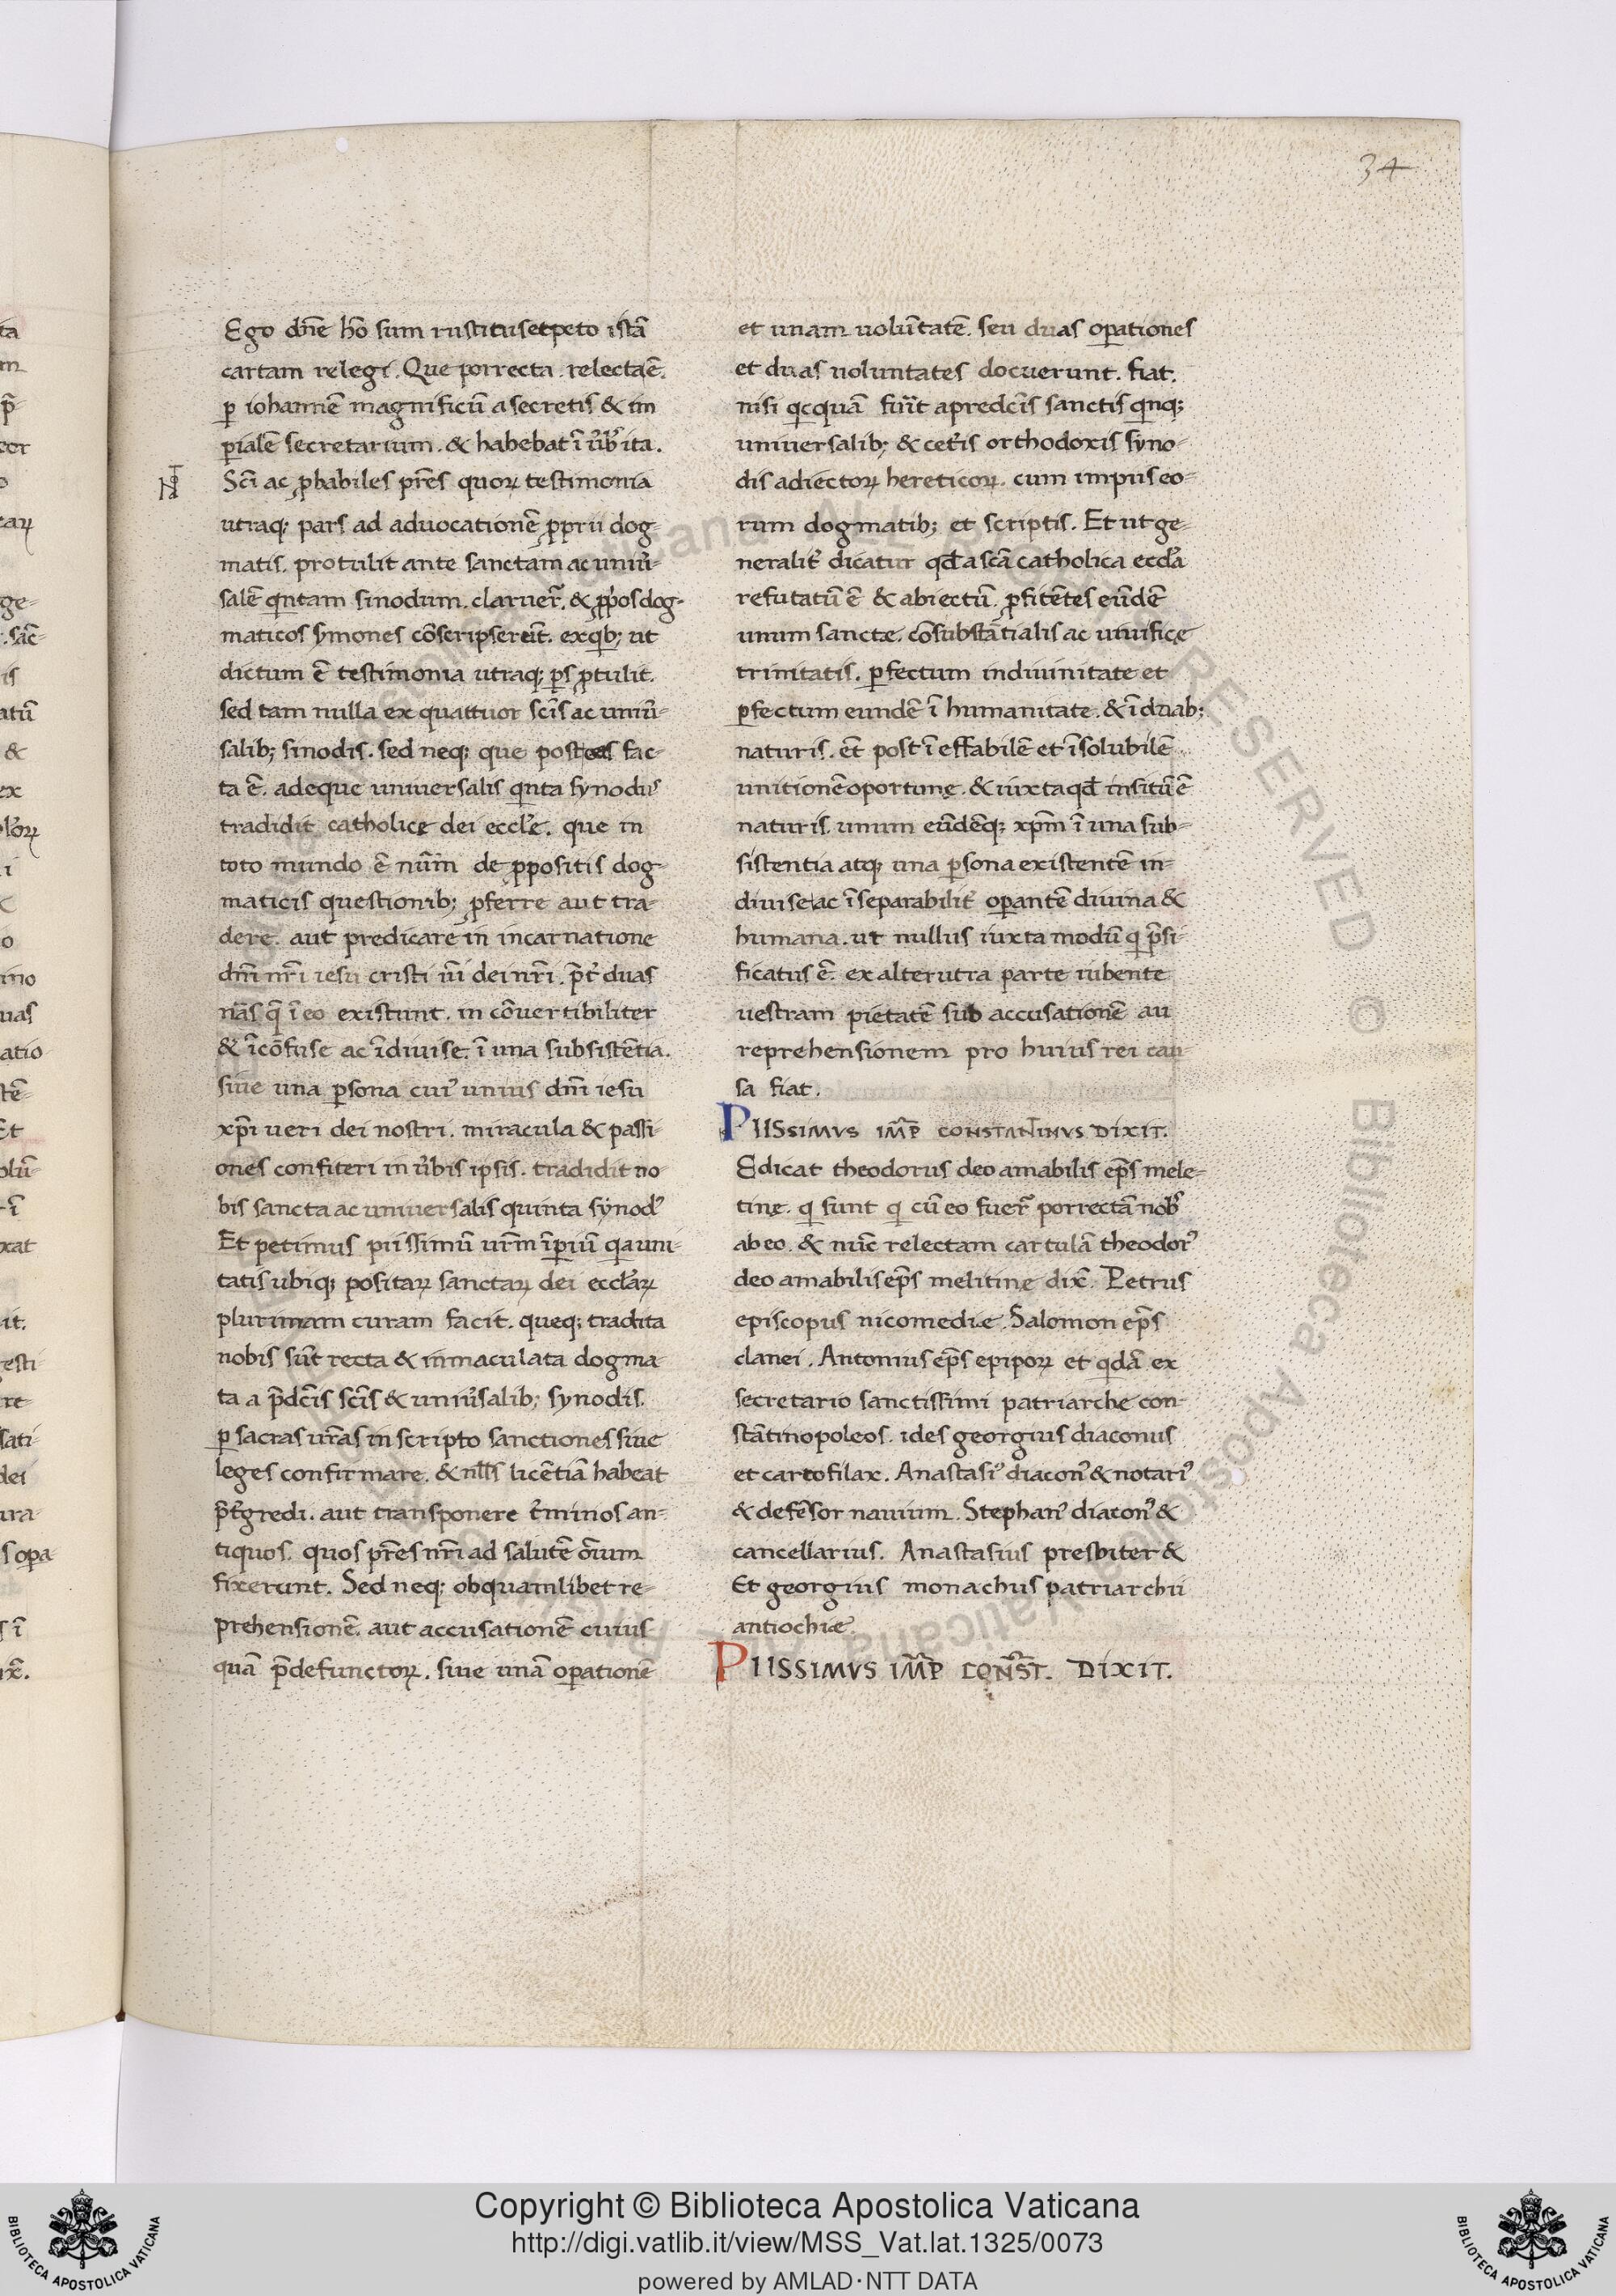 34
Ego dñe hõ sum rusticus et peto istã
cartam relegi. Que porrecta. relecta ẽ.
ꝑ iohannẽ magnificũ a secretis & im
ꝑialẽ secretarium. & habebat ĩ ũb᷒ ita.
Scĩ ac ꝓbabiles pr̃es quoꝝ testimonia
utraqꝫ pars ad aduocationẽ ꝓprii dog-
matis. protulit ante sanctam ac uniũ-
salẽ qntam sinodum. claruer̃. & ꝓp̃os dog-
maticos symones cõscripserũt. ex qbꝫ ut
dictum ẽ testimonia utraqꝫ ꝑs ꝓtulit.
sed tam nulla ex quattuor scĩs ac uniũ-
salibꝫ sinodis. sed neqꝫ que post eas fac-
ta ẽ. adeque uniuersalis qnta synodus
tradidit catholice dei eccl̃e. que in
toto mundo ẽ nũm de ꝓpositis dog-
maticis questionibꝫ ꝓferre aut tra-
dere. aut predicare in incarnatione
dñi nr̃i iesu cristi ũi dei nr̃i. p̃t̃ duas
nãs q̃ ĩ eo existunt. in cõuertibiliter
& ĩcõfuse ac ĩdiuise. ĩ una subsistẽtia.
siue una ꝑsona cui᷒ unius dñi iesu
xp̃i ueri dei nostri. miracula & passi-
ones confiteri in ũbis ipsis. tradidit no-
bis sancta ac uniuersalis quinta synod᷒
Et petimus piissimũ ur̃m ĩꝑiũ qa uni-
tatis ubiqꝫ positaꝝ sanctaꝝ dei eccl̃aꝝ
plurimam curam facit. queqꝫ tradita
nobis sũt recta & inmaculata dogma-
ta a p̃dc̃is scĩs & uniũsalibꝫ synodis.
ꝑ sacras ur̃as in scripto sanctiones siue
leges confirmare. & nll̃s licẽtiã habeat
p̃t̃gredi. aut transponere t̃minos an-
tiquos. quos pr̃es nr̃i ad salutẽ õium
fixerunt. Sed neqꝫ ob quamlibet re-
prehensionẽ. aut accusationẽ cuius
quã p̃defunctoꝝ. siue unã oꝑationẽ
et unam uolũtatẽ. seu duas oꝑationes
et duas uoluntates docuerunt. fiat.
nisi qcquã fũit a predc̃is sanctis qnqꝫ
uniuersalibꝫ & cet̃is orthodoxis syno-
dis adiectoꝝ hereticoꝝ. cum impiis eo-
rum dogmatibꝫ et scriptis. Et ut ge-
neralit̃ dicatur qđ a scã catholica eccl̃a
refutatũ ẽ & abiectũ. ꝓfitẽtes eũdẽ
unum sancte. cõsubstãtialis ac uiuifice
trinitatis. ꝑfectum in diuinitate et
ꝑfectum eundẽ ĩ humanitate. & ĩ duabꝫ
naturis. et̃ post ĩ effabilẽ et ĩsolubilẽ
unitionẽ oportune. & iuxta qđ insitũ ẽ
naturis. unum eũdẽqꝫ xp̃m ĩ una sub-
sistentia atqꝫ una ꝑsona existentẽ in-
diuise ac ĩseparabilit̃ oꝑantẽ diuina &
humana. ut nullus iuxta modũ q p̃si-
ficatus ẽ. ex alterutra parte iubente
uestram pietatẽ sub accusationẽ au
reprehensionem pro huius rei cau-
sa fiat.
PIISSIMVS IMP̃ CONSTANTINVS DIXIT.
Edicat theodorus deo amabilis ep̃s mele-
tine. q sunt q cũ eo fuer̃ porrectã nob᷒
ab eo. & nũc relectam cartulã theodor᷒
deo amabilis ep̃s melitine dix̃. Petrus
episcopus nicomedie. Salomon ep̃s
clanei. Antonius ep̃s epipoꝝ et qdã ex
secretario sanctissimi patriarche con-
stãtinopoleos. ides georgius diaconus
et cartofilax. Anastasi᷒ diacon᷒ & notari᷒
& defẽsor nauium. Stephan᷒ diacon᷒ &
cancellarius. Anastasius presbiter &
Et georgius monachus patriarchii
antiochie.
PIISSIMVS IMP̃ CONST̃. DIXIT.
Copyright © Biblioteca Apostolica Vaticana
http://digi.vatlib.it/view/MSS_Vat.lat.1325/0073
powered by AMLAD·NTT DATA
BIBLIOTECA APOSTOLICA VATICANA
BIBLIOTECA APOSTOLICA VATICANA